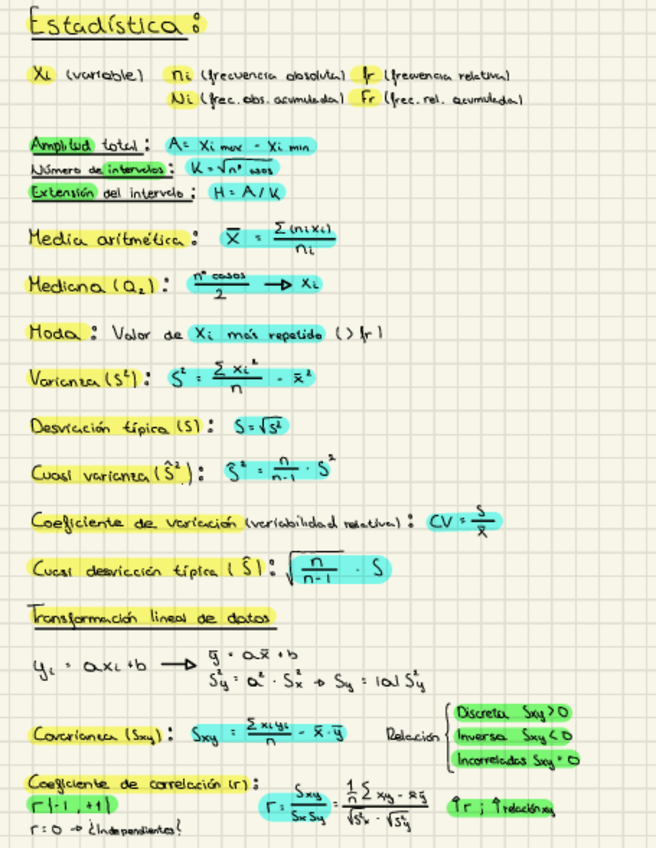 Estadística:
Xi (variable) ni (frecuencia absoluta) fr (frecuencia relativa)
Ni (frec. abs. acumulada) Fr (frec. rel. acumulada)
Amplitud total: A = Xi max - Xi min
Número de intervalos: K = √nº casos
Extensión del intervalo: H = A/K
Media aritmética: X̄ = Σ(nixi) / ni
Mediana (Q₂): nº casos / 2 → Xi
Moda: Valor de Xi más repetido (>fr)
Varianza (S²): S² = Σxi² / n - x̄²
Desviación típica (S): S = √S²
Cuasi varianza (Ŝ²): Ŝ² = n / n-1 · S²
Coeficiente de variación (variabilidad relativa): CV = S / x̄
Cuasi desviación típica (Ŝ): √n / n-1 · S
Transformación lineal de datos
yi = axi+b → ȳ = ax̄ +b
S²y = a² · S²x → Sy = |a| S²y
Covarianza (Sxy): Sxy = Σxiyi / n - x̄·ȳ Relación { Discreta Sxy>0
Inversa Sxy<0
Incorreladas Sxy=0
Coeficiente de correlación (r):
r{-1, +1} r = Sxy / SxSy = 1/n Σxy - x̄ȳ / √S²x · √S²y ↑r ; ↑relación xy
r=0 → ¿Independientes?